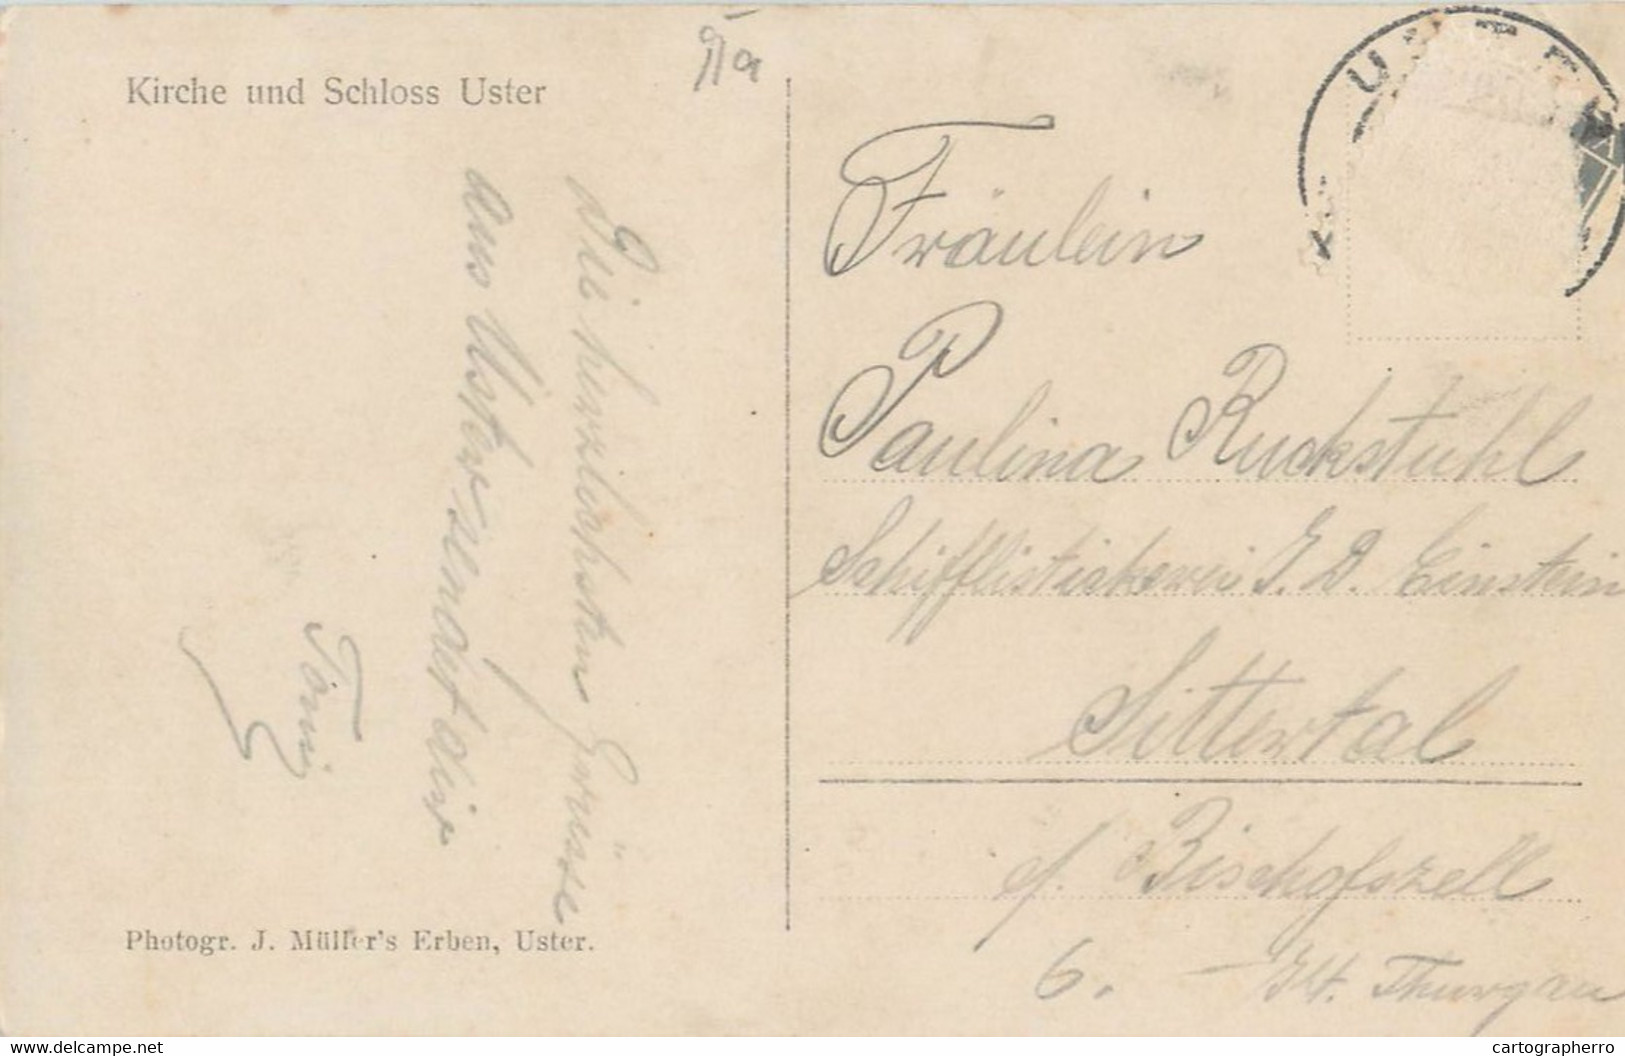 Kirche und Schloss Uster
Die herzlichsten Grüsse
aus Uster sendet dir
Töni
Photogr. J. Müller's Erben, Uster.
USTER
Fräulein
Paulina Ruckstuhl
Schifflistickerei J. D. Einstein
Sittertal
b/. Bischofszell
6. Kt. Thurgau
www.delcampe.net
cartographerro